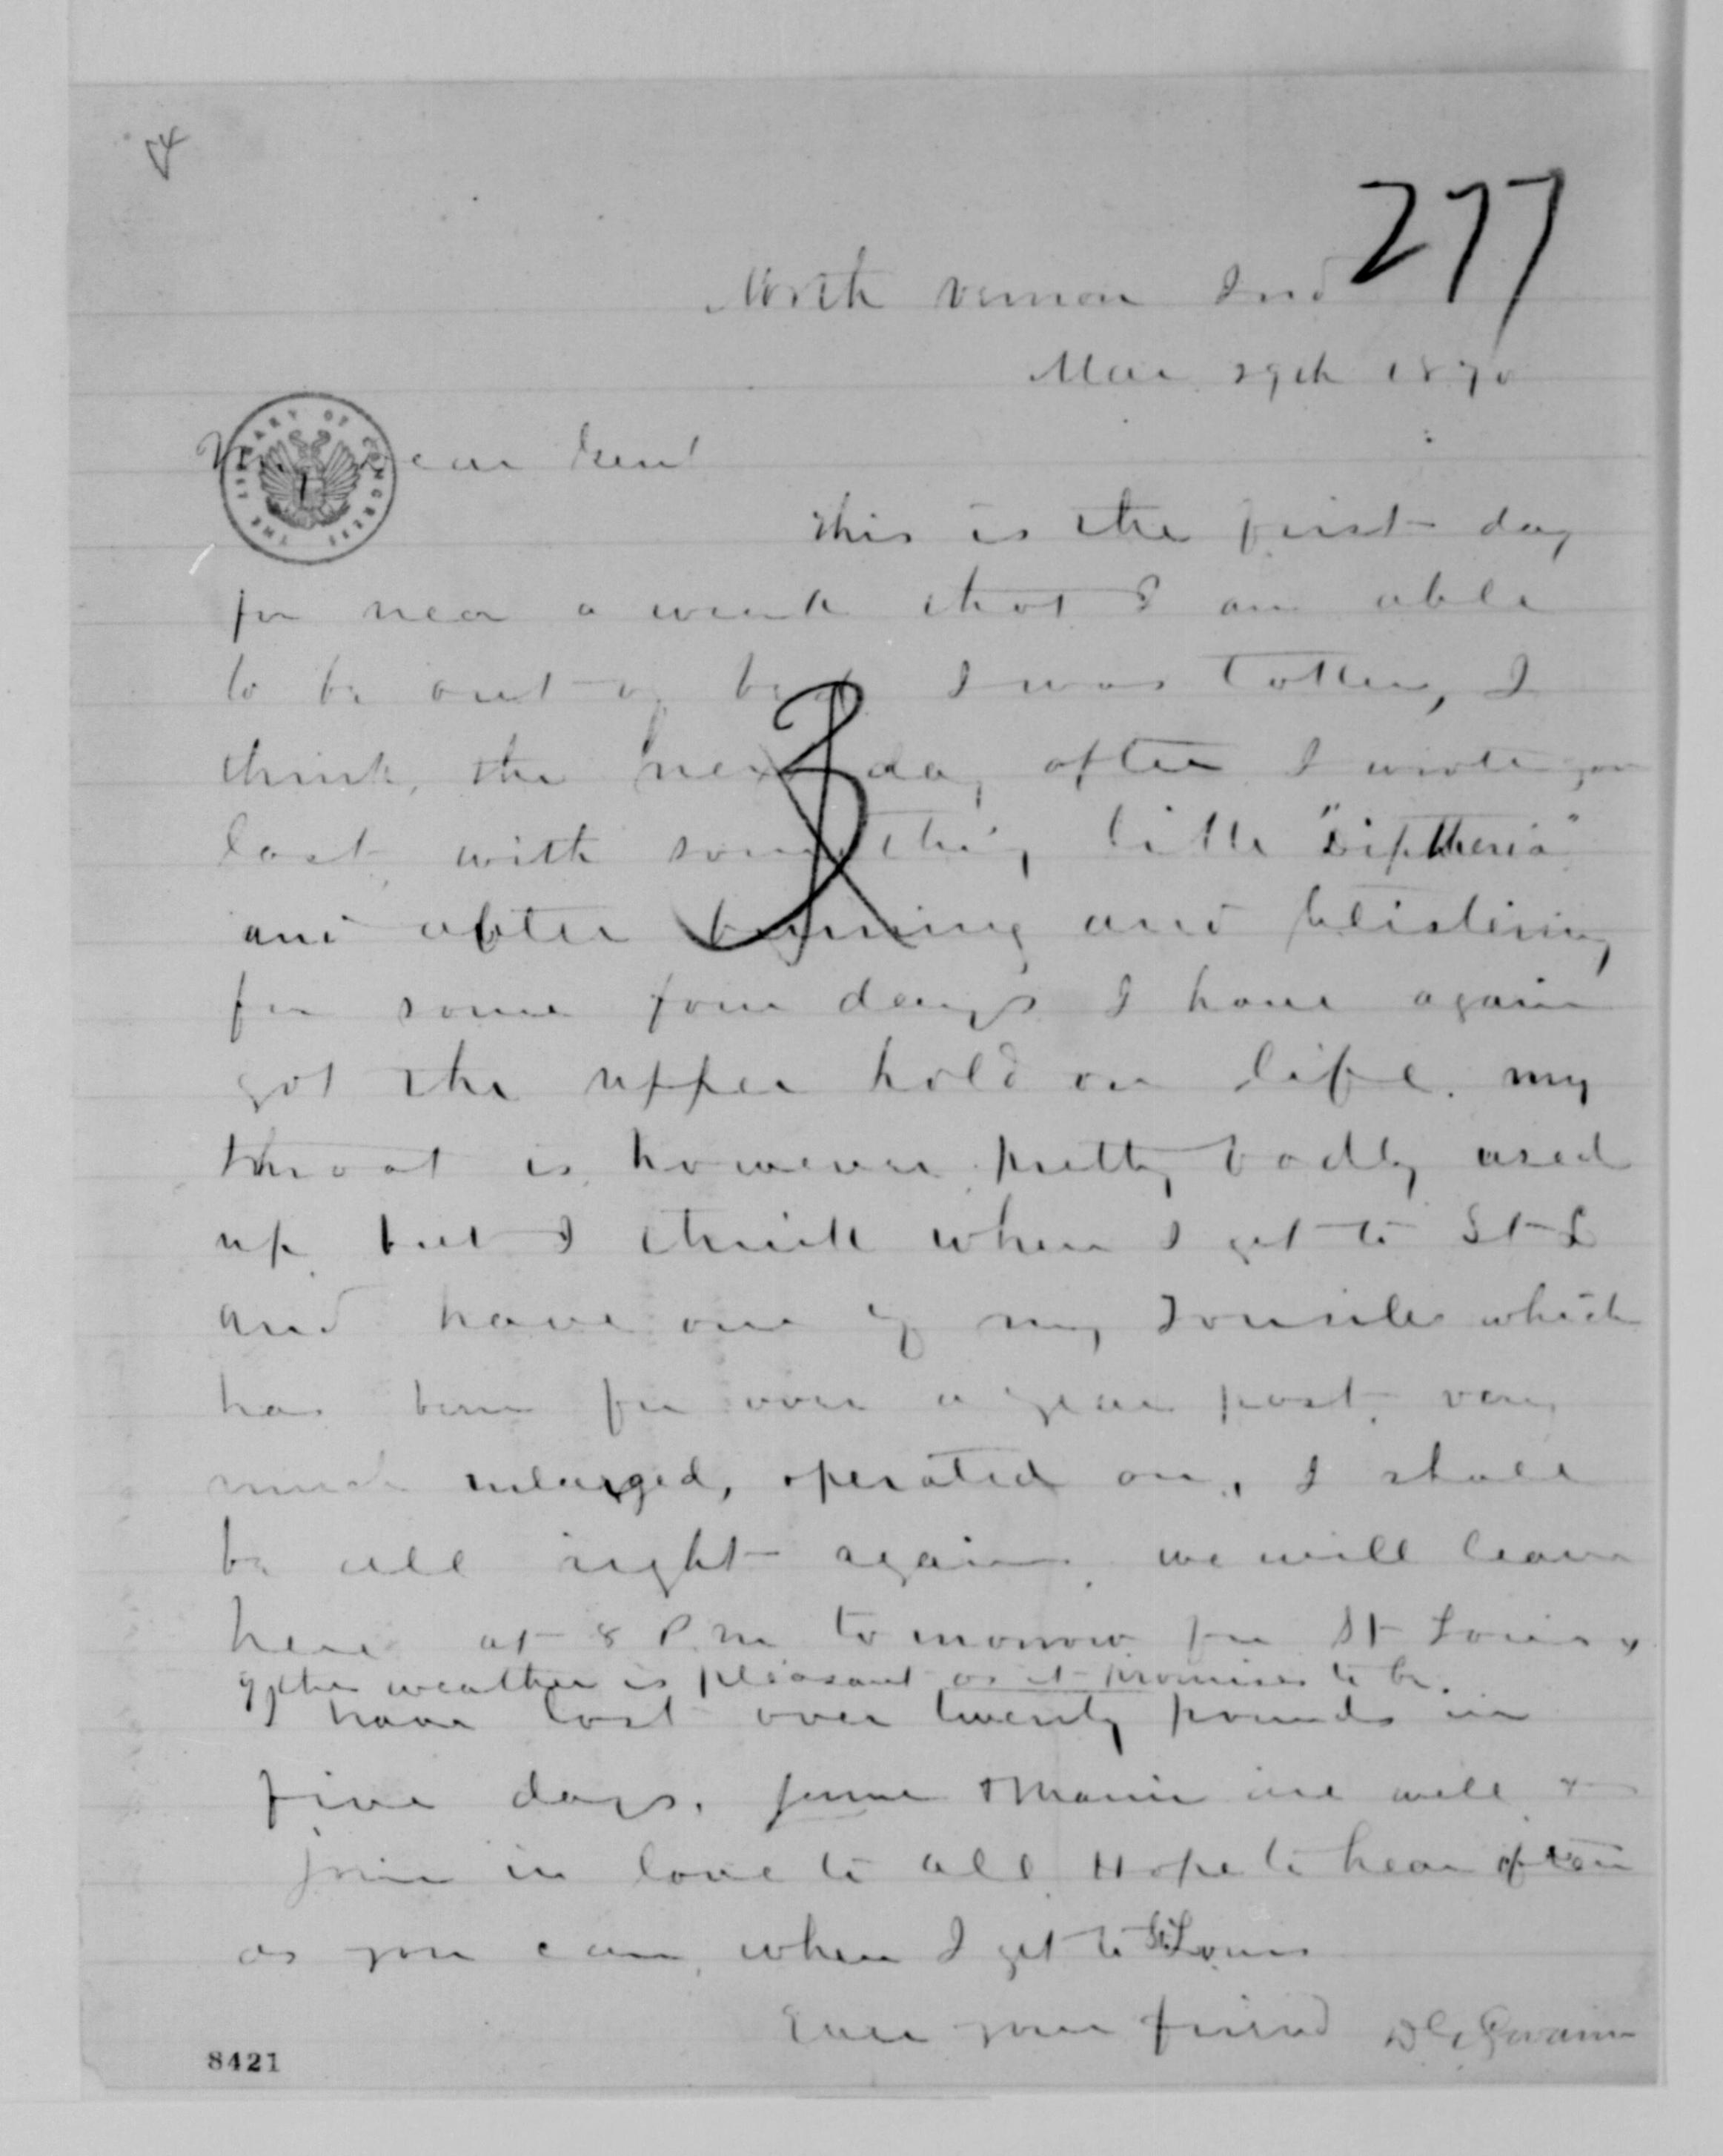 277
North Vernon Ind
Mar 29th 1870
THE LIBRARY OF CONGRESS
My Dear Genl
This is the first day
for near a week that I am able
to be out of bed I was Taken, I
think, the next day after I wrote you
last, with something like "Diptheria"
and after burning and blistering
for some four days I have again
got the upper hold on life. my
throat is however pretty badly used
up but I think when I get to St L
and have one of my Tonsils which
has been for over a year past, very
much enlarged, operated on, I shall
be all right again. we will leave
here at 8 P.m tomorrow for St Louis,
if the weather is pleasant as it promises to be.
I have lost over twenty pounds in
five days. Jennie & Mamie are well &
join in love to all Hope to hear often
as you can, when I get to St Louis
Ever your friend D G Swaim
8421